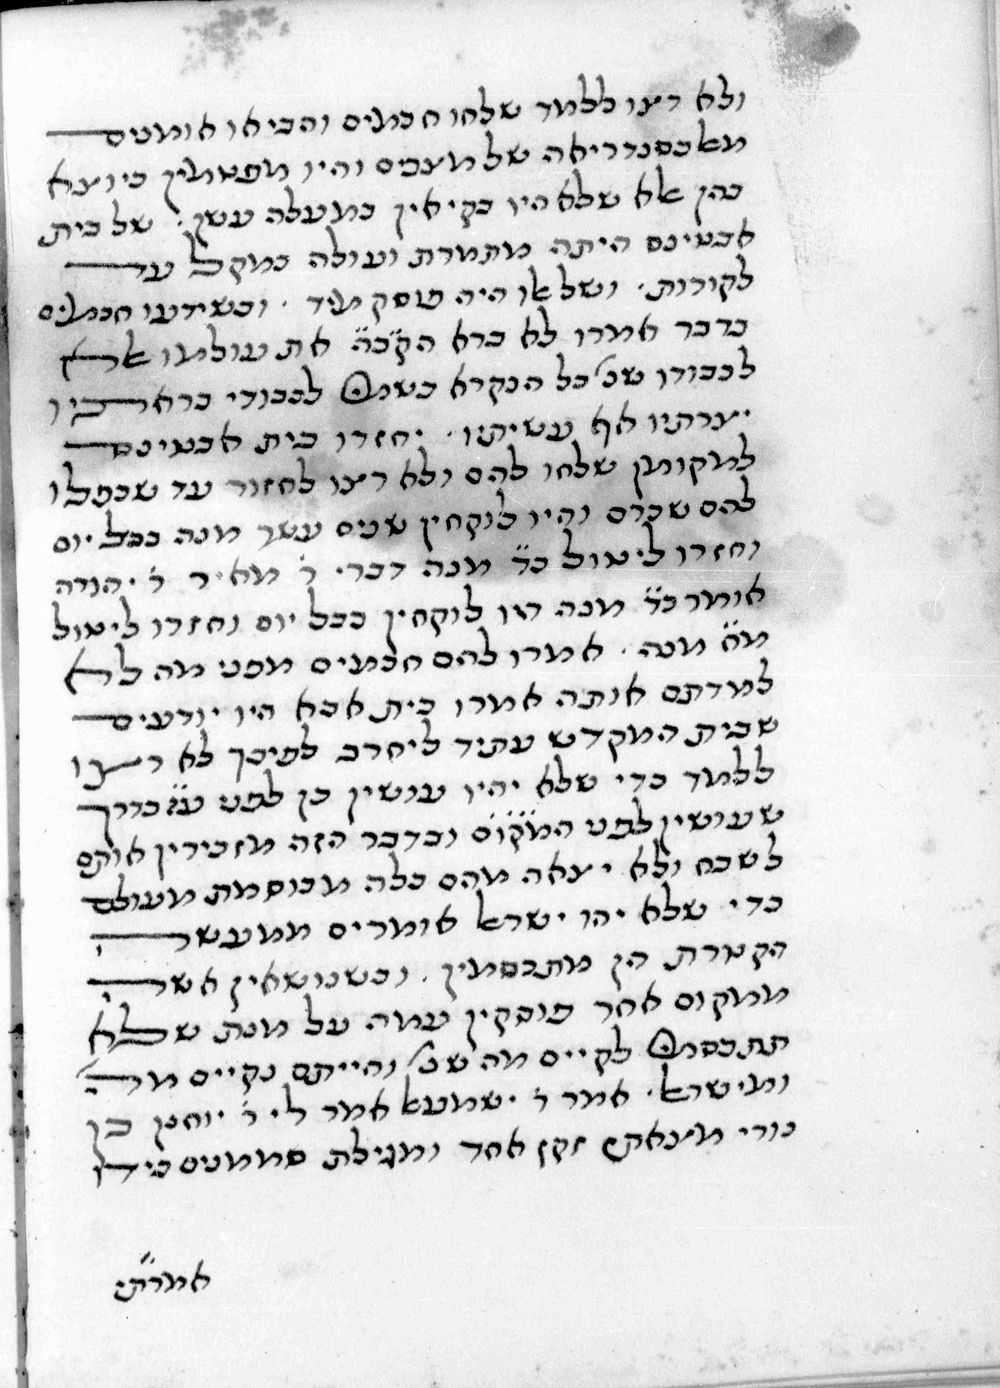 ולא רצו ללמד שלחו חכמים והביאו אומנים
מאלכסנדריאה של מצרים והיו מפטמין כיוצא
בהן אלא שלא היו בקיאין במעלה עשן. של בית
אבטינס היתה מתמרת ועולה כמקל עד
לקורות. ושל אלו היה פוסק מיד. וכשידעו חכמים
בדבר אמרו לא ברא הק״בה את עולמו אלא
לכבודו שנ׳ כל הנקרא בשמי ולכבודי בראתיו
יצרתיו אף עשיתיו. יחזרו בית אבטינס
למקומן שלחו להם ולא רצו לחזור עד שכפלו
להם שכרם והיו לוקחין שנים עשר מנה בכל יום
וחזרו ליטול כ״ד מנה דברי ר׳ מאיר ר׳ יהודה
אומר כ״ד מנה היו לוקחין בכל יום וחזרו ליטול
מ״ח מנה. אמרו להם חכמים מפני מה לא
למדתם אותה אמרו בית אבא היו יודעים
שבית המקדש עתיד ליחרב לפיכך לא רצו
ללמד כדי שלא יהיו עושין כן לפני ע״ז כדרך
שעושין לפני המקום ובדבר הזה מזכירין אותם
לשבח ולא יצאה מהם כלה מבוסמת מעולם
כדי שלא יהו ישראל אומרים ממעשה
הקטרת הן מתבסמין. וכשנושאין אשה
ממקום אחר פוסקין עמה על מנת שלא
תתבסם לקיים מה שנ׳ והייתם נקיים מה׳
ומישראל. אמר ר׳ ישמעאל אמר לי ר׳ יוחנן בן
נורי מצאתי זקן אחד ומגילת סממנים בידו
אמרתי